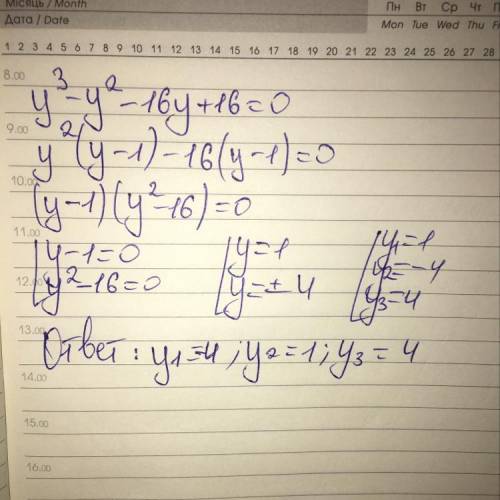 Місяць / Month
Дата / Date
Пн Вт Ср Чт
Mon Tue Wed Thu Fr
1 2 3 4 5 6 7 8 9 10 11 12 13 14 15 16 17 18 19 20 21 22 23 24 25 26 27 28
8.00
y³-y²-16y+16=0
9.00
y²(y-1)-16(y-1)=0
10.00
(y-1)(y²-16)=0
11.00
[y-1=0 [y=1 [y₁=1
y²-16=0 y=±4 y₂=-4
12.00
y₃=4
13.00
Ответ: y₁=4; y₂=1; y₃=4
14.00
15.00
16.00